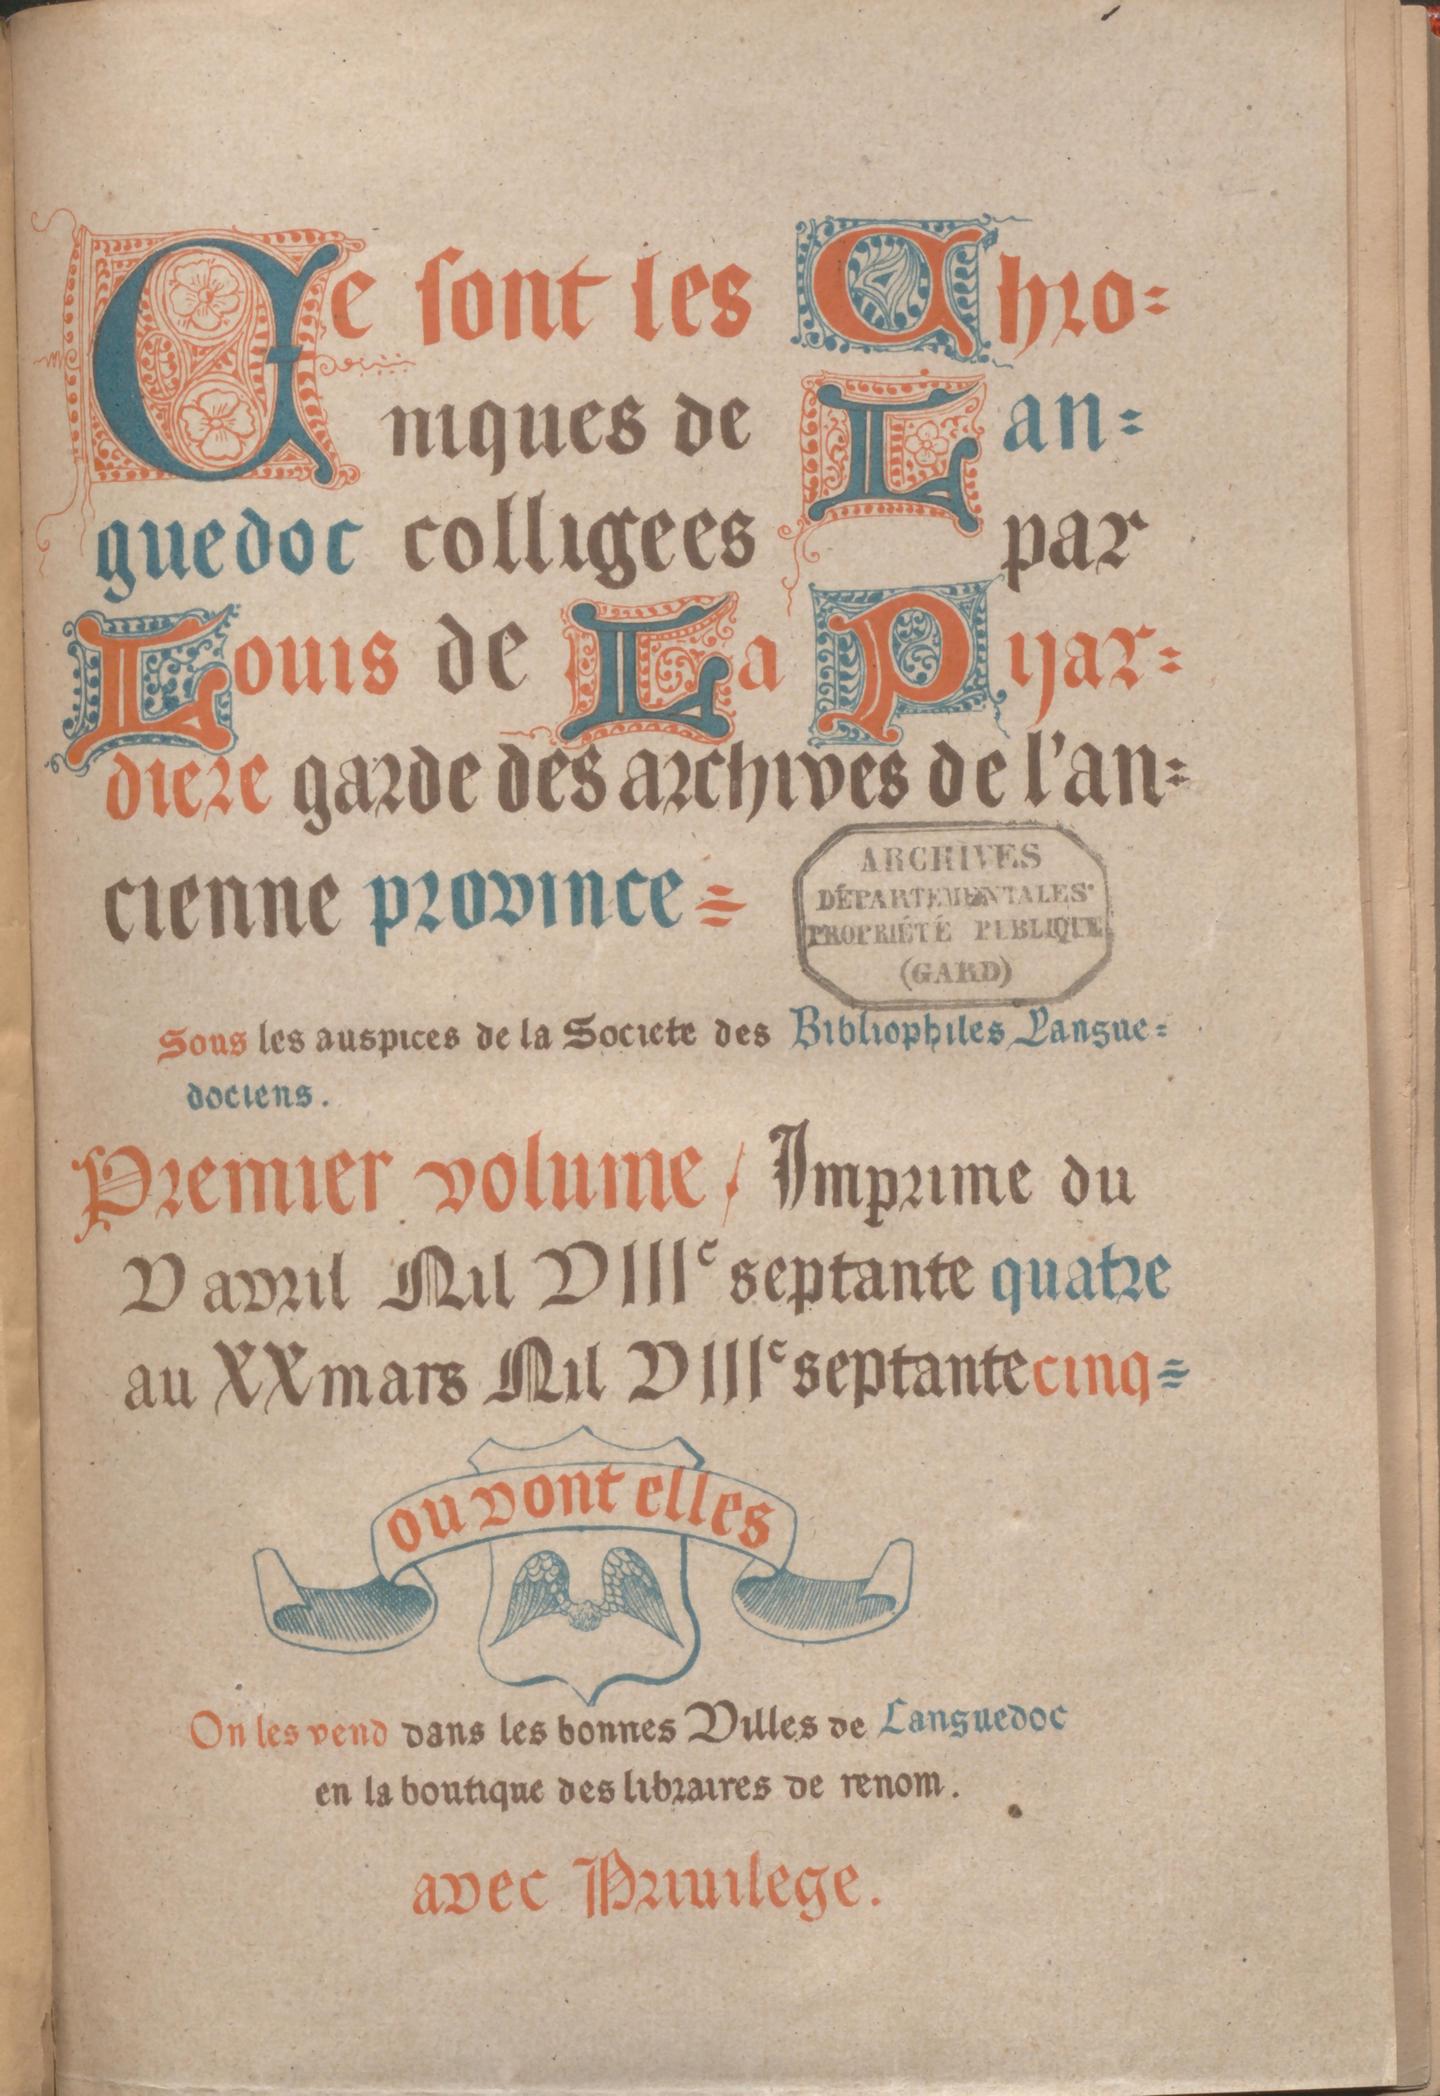 Ce sont les Chro=
niques de Lan=
guedoc colligees par
Louis de La Pijar=
diere garde des archives de l'an=
cienne province=
ARCHIVES
DÉPARTEMENTALES
PROPRIÉTÉ PUBLIQUE
(GARD)
Sous les auspices de la Societe des Bibliophiles Langue=
dociens.
Premier volume / Imprime du
V avril Mil VIIIc septante quatre
au XX mars Mil VIIIc septante cinq=
ou vont elles
On les vend dans les bonnes Villes de Languedoc
en la boutique des libraires de renom.
avec Priuilege.